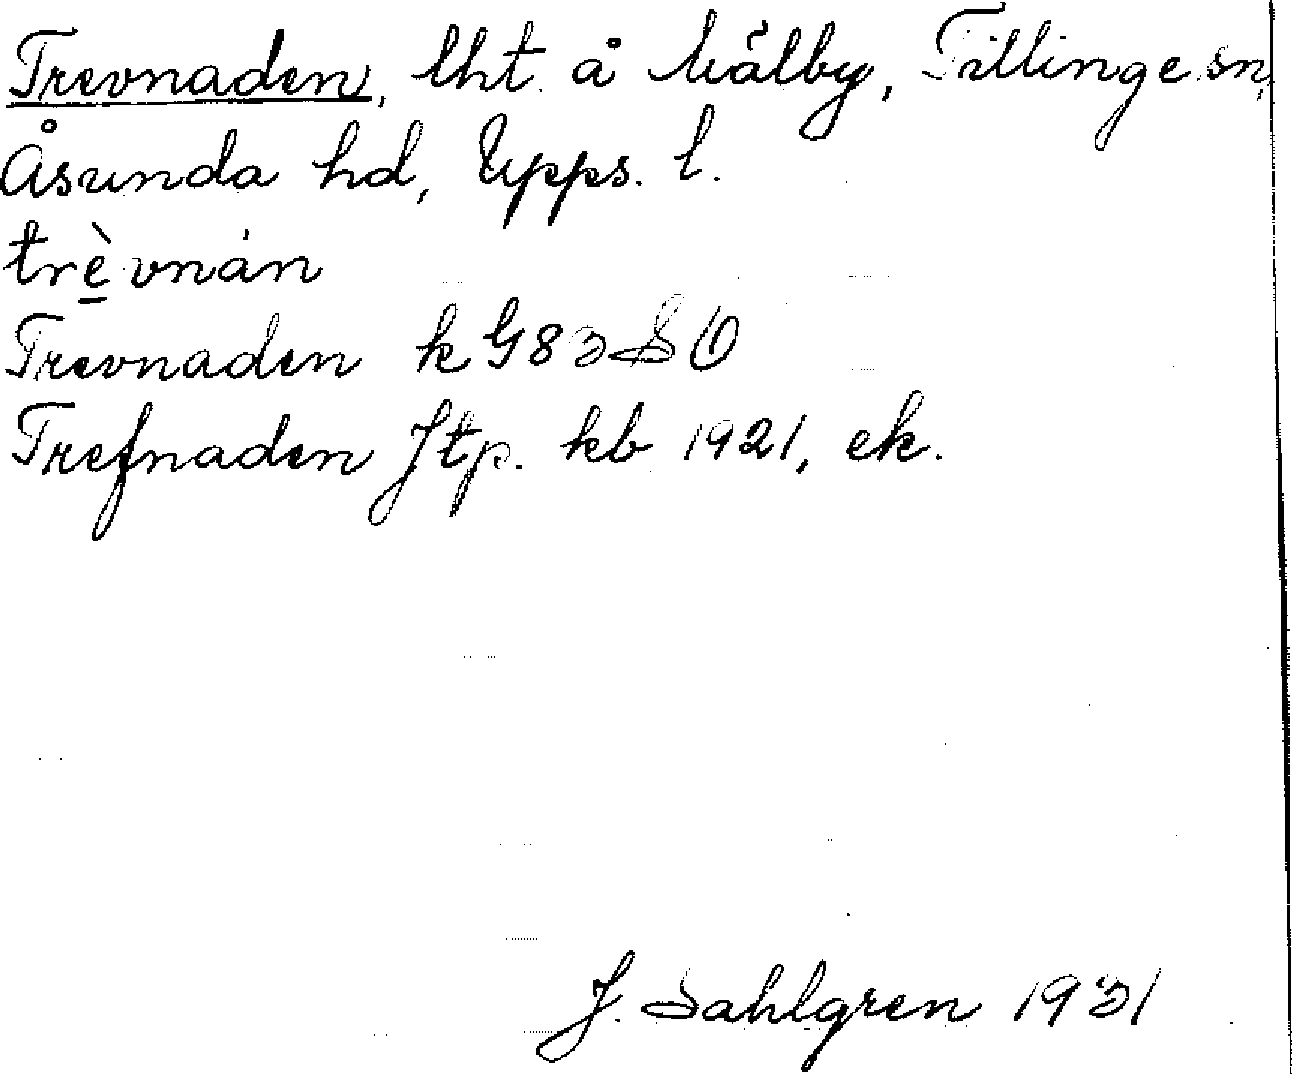 Trevnaden, lht. å Mälby, Tillinge sn,
Åsunda hd, Upps. l.
trè̱vnán
Trevnaden k G 83 SO
Trefnaden Jtp. kb 1921, ek.
J. Sahlgren 1931